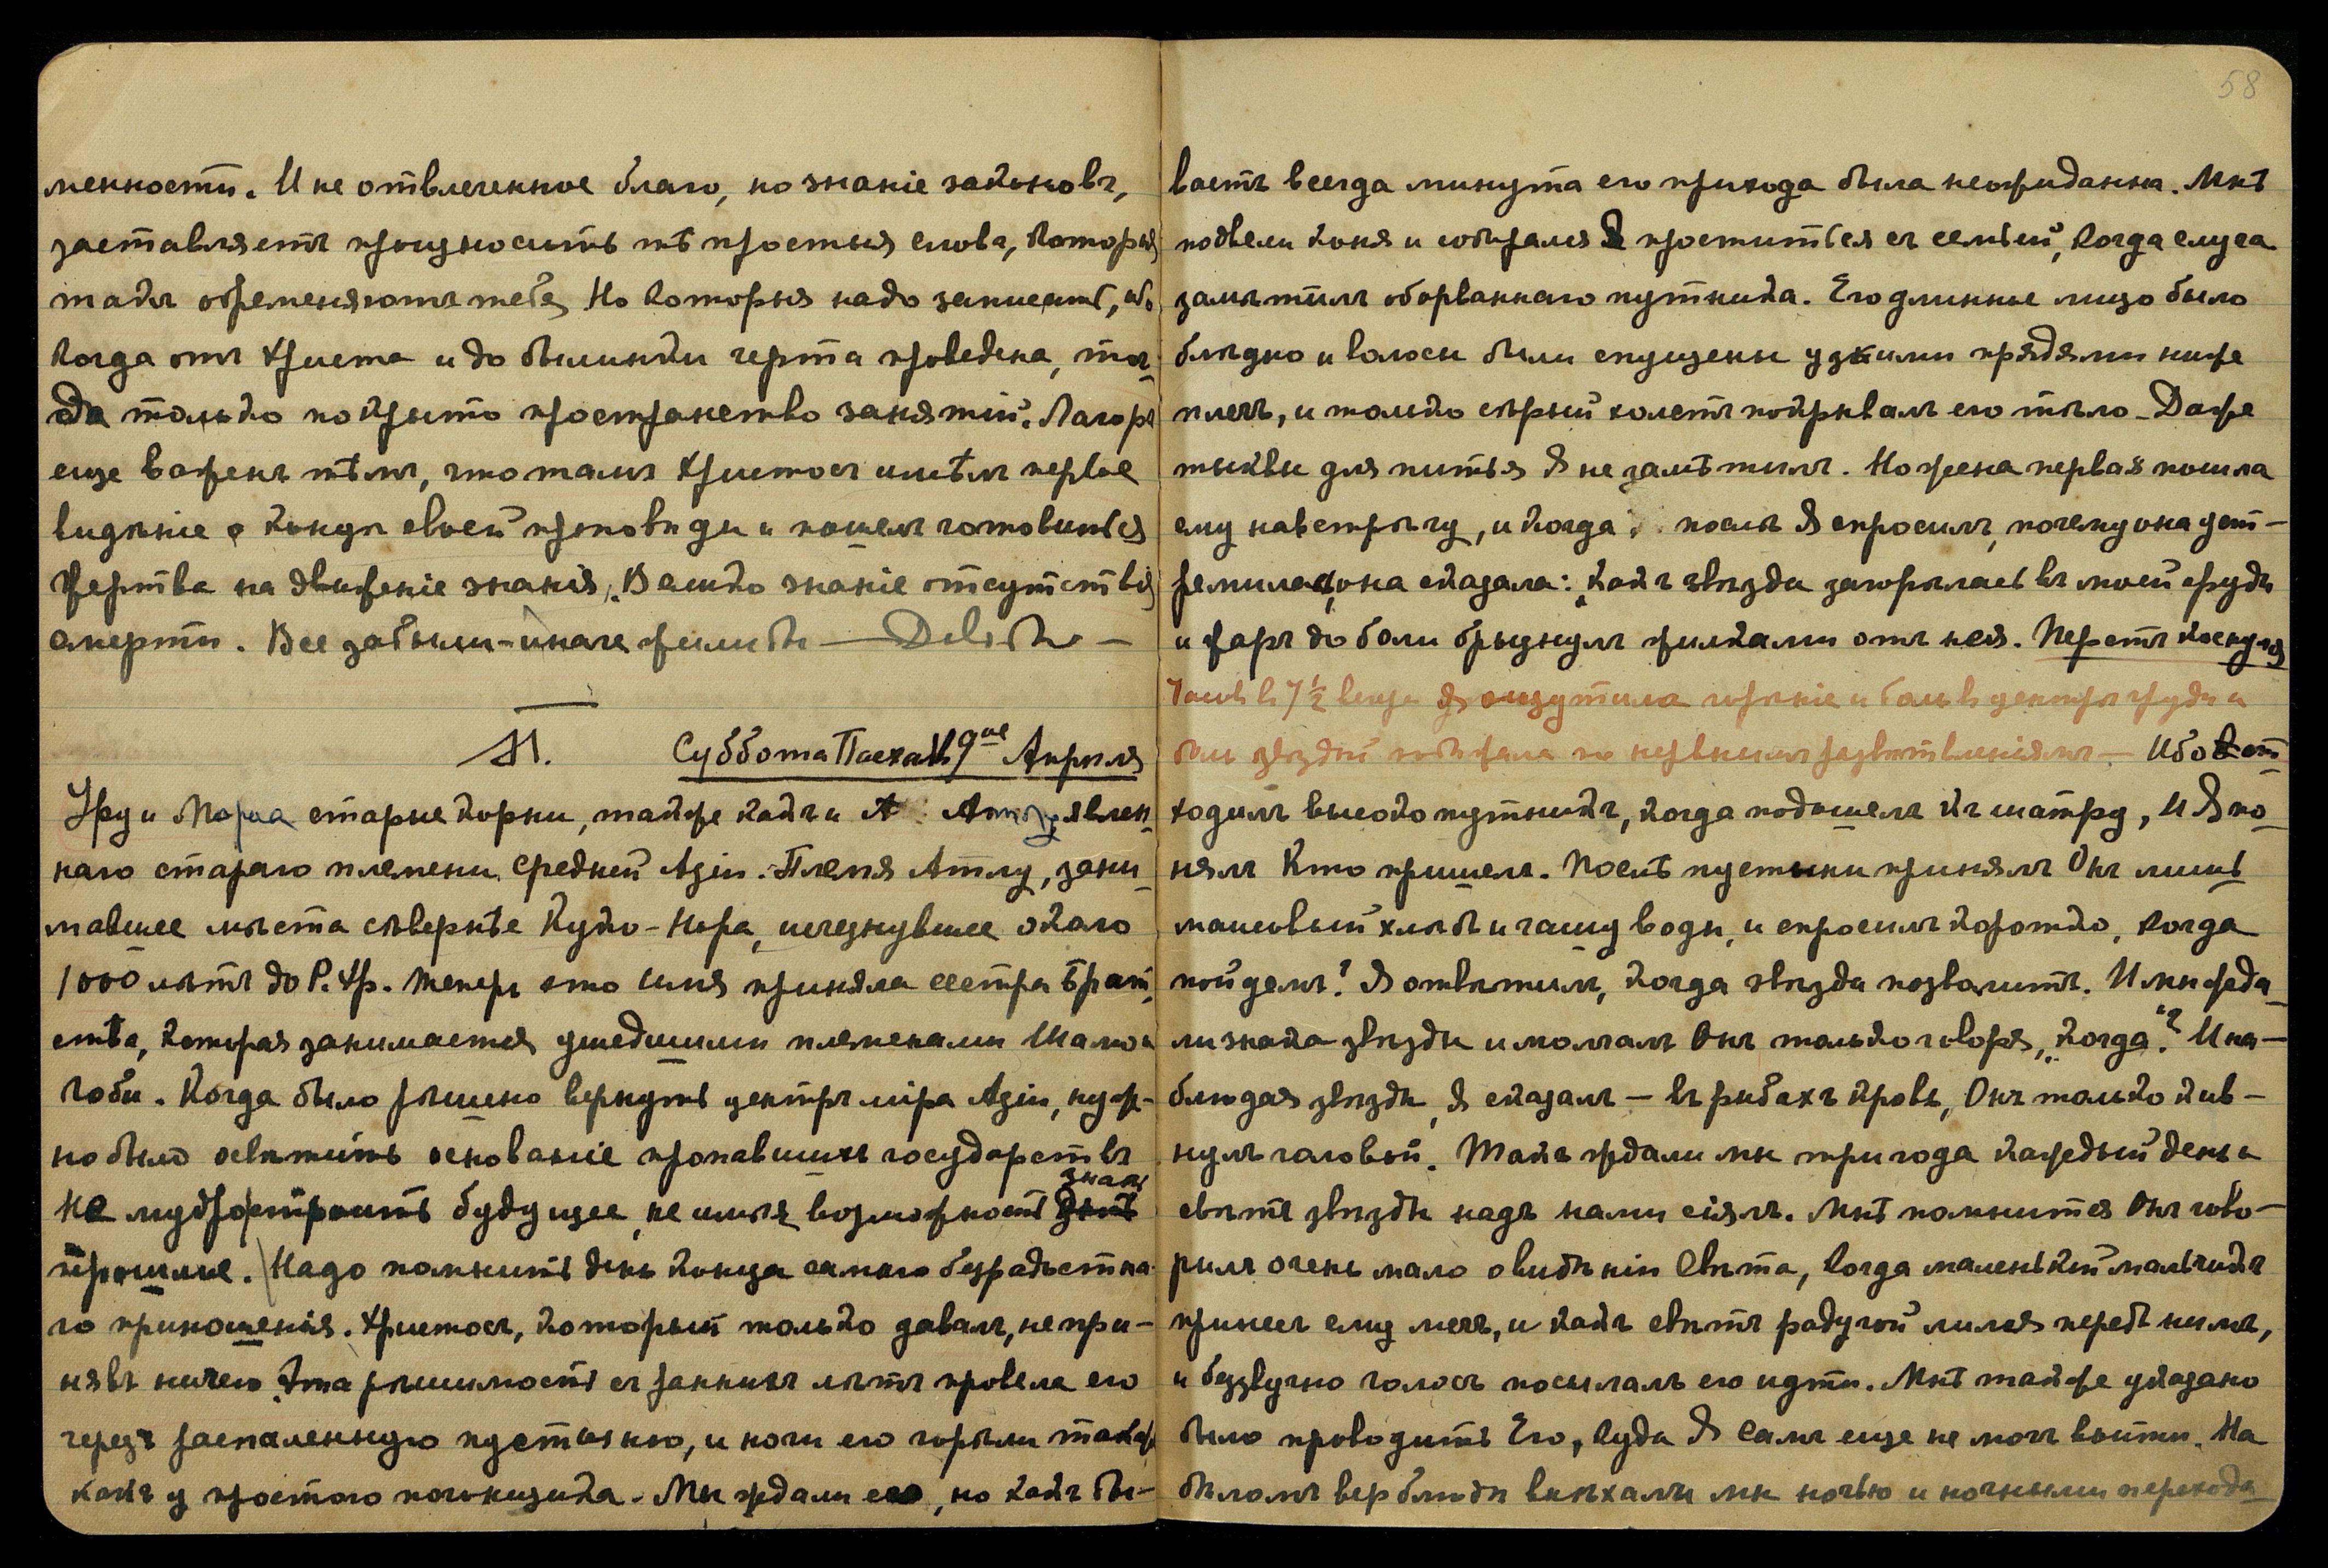 менности. И не отвлеченное благо, но знаніе законовъ,
заставляетъ произносить тѣ простыя слова, которыя
такъ обременяютъ тебя, Но которыя надо записать, ибо
когда отъ Христа и до былинки черта проведена, тог-
да только покрыто пространство занятій.
еще важенъ тѣмъ, что тамъ Христосъ имѣлъ первое
видѣніе о концѣ своей проповѣди и пошелъ готовиться
Жертва на движеніе знанія, Велико знаніе отсутствія
смерти. Все забыли - иначе жили бы —
П. Суббота Пасха 19ое Апрѣля
Уру и Мориа старые корни, также какъ и Атлу явлен-
наго стараго племени Средней Азіи. Племя Атлу, зани-
мавшее мѣста сѣвернѣе Куку-Нора, исчезнувшее около
1000 лѣтъ до Р. Хр. Теперь это имя приняла сестра Брат-
ства, которая занимается ушедшими племенами Шамо и
Гоби. Когда было рѣшено вернуть центръ міра Азіи, нуж-
но было освѣтить основаніе пропавшихъ государствъ
Не мудро строить будущее, не имѣя возможность знать
прошлое. Надо помнить день конца самаго безрадостна-
го приношенія. Христосъ, который только давалъ, не при-
нявъ ничего. Эта рѣшимость съ раннихъ лѣтъ провела его
черезъ распаленную пустыню, и ноги его горѣли также
какъ у простого погонщика. Мы ждали его, но какъ бы-
58
ваетъ всегда минута его прихода была неожиданна. Мнѣ
подвели коня и собирался Я проститься съ семьей, когда слуга
замѣтилъ оборваннаго путника. Его длинное лицо было
блѣдно и волосы были спущены узкими прядями ниже
плечъ, и только сѣрый холстъ покрывалъ его тѣло. Даже
тыквы для питья Я не замѣтилъ. Но жена первая пошла
ему навстрѣчу, и когда послѣ Я спросилъ, почему она уст-
ремилась, она сказала: „какъ звѣзда загорѣлась въ моей груди
и жаръ до боли брызнулъ жилками отъ нея. Перстъ коснулся
7 часовъ въ 7½ вечера Я ощутила горѣніе и боль въ центрѣ груди и
боль звѣздой побѣжала по нервнымъ развѣтвленіямъ — Ибо вос-
ходилъ высоко путникъ, когда подошелъ къ шатру, И Я по-
нялъ Кто пришелъ. Послѣ пустыни принялъ Онъ лишь
маисовый хлѣбъ и чашу воды, и спросилъ коротко, когда
пойдемъ? Я отвѣтилъ, когда звѣзда позволитъ. И мы жда-
ли знака звѣзды и молчалъ Онъ только говоря, „когда“? И на-
блюдая звѣзды, Я сказалъ — въ рыбахъ кровь, Онъ только кив-
нулъ головой. Такъ ждали мы три года каждый день и
свѣтъ звѣзды надъ нами сіялъ. Мнѣ помнится Онъ гово-
рилъ очень мало о видѣніи Свѣта, когда маленькій мальчикъ
принесъ ему мечъ, и какъ свѣтъ радугой лился передъ нимъ,
и беззвучно голосъ посылалъ его идти. Мнѣ также указано
было проводить Его, куда Я Самъ еще не могъ выйти. На
бѣломъ верблюдѣ выѣхали мы ночью и ночными перехода-